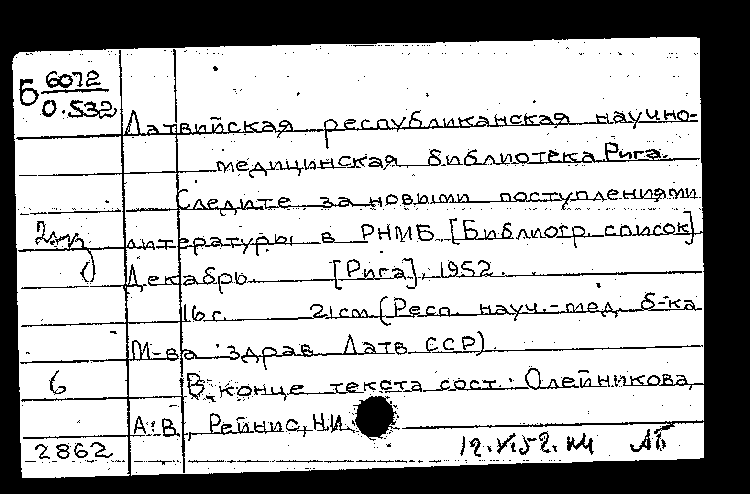 Б 6072
0.532
Латвийская республиканская научно-
медицинская библиотека Рига.
Следите за новыми поступлениями
2 экз
литературы в РНМБ [Библиогр. список].
Декабрь. [Рига], 1952.
16 с. 21 cm (Респ. науч.-мед. б-ка
М-ва здрав. Латв. ССР).
6
В конце текста сост.: Олейникова,
А.В., Рейнис, Н.И.
2862